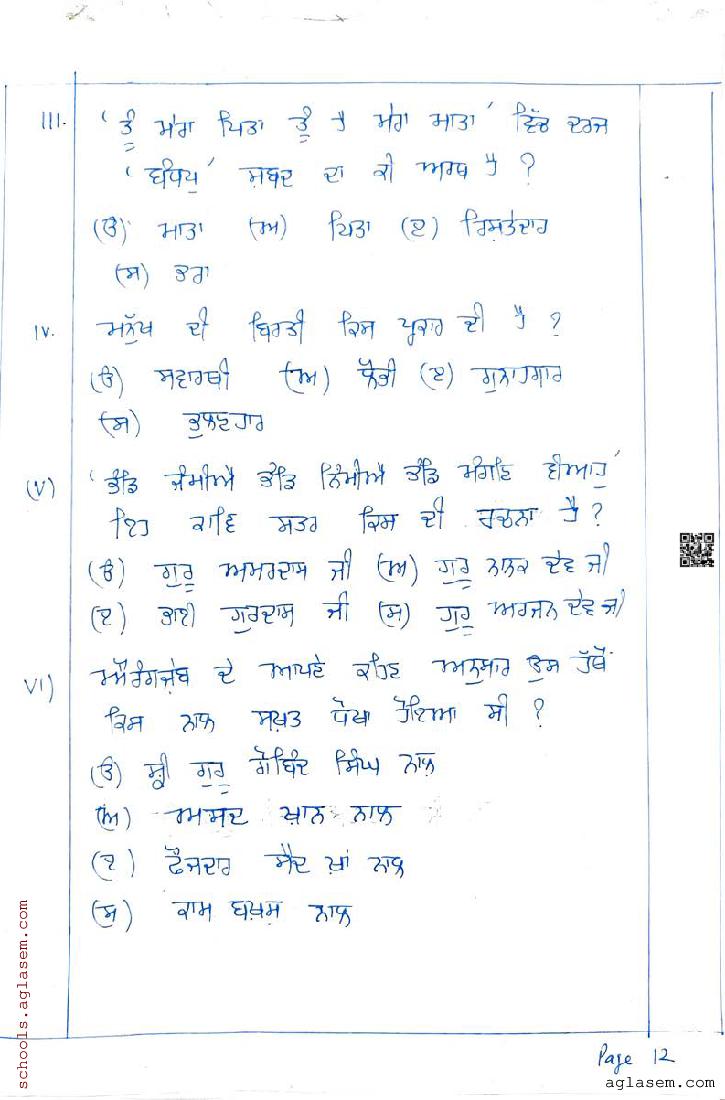 III. 'ਤੂੰ ਮੇਰਾ ਪਿਤਾ ਤੂੰ ਹੈ ਮੇਰਾ ਮਾਤਾ' ਵਿੱਚ ਦਰਜ
'ਬੰਧਪੁ' ਸ਼ਬਦ ਦਾ ਕੀ ਅਰਥ ਹੈ ?
(ੳ) ਮਾਤਾ (ਅ) ਪਿਤਾ (ੲ) ਰਿਸ਼ਤੇਦਾਰ
(ਸ) ਭਰਾ
IV. ਮਨੁੱਖ ਦੀ ਬਿਰਤੀ ਕਿਸ ਪ੍ਰਕਾਰ ਦੀ ਹੈ ?
(ੳ) ਸਵਾਰਥੀ (ਅ) ਲੋਭੀ (ੲ) ਗੁਨਾਹਗਾਰ
(ਸ) ਭੁਲਣਹਾਰ
(V) 'ਭੰਡਿ ਜੰਮੀਐ ਭੰਡਿ ਨਿੰਮੀਐ ਭੰਡਿ ਮੰਗਣਿ ਵੀਆਹੁ'
ਇਹ ਕਾਵਿ ਸਤਰ ਕਿਸ ਦੀ ਰਚਨਾ ਹੈ ?
(ੳ) ਗੁਰੂ ਅਮਰਦਾਸ ਜੀ (ਅ) ਗੁਰੂ ਨਾਨਕ ਦੇਵ ਜੀ
(ੲ) ਭਾਈ ਗੁਰਦਾਸ ਜੀ (ਸ) ਗੁਰੂ ਅਰਜਨ ਦੇਵ ਜੀ
VI) ਔਰੰਗਜ਼ੇਬ ਦੇ ਆਪਣੇ ਕਹਿਣ ਅਨੁਸਾਰ ਉਸ ਹੱਥੋਂ
ਕਿਸ ਨਾਲ ਸਖ਼ਤ ਧੋਖਾ ਹੋਇਆ ਸੀ ?
(ੳ) ਸ੍ਰੀ ਗੁਰੂ ਗੋਬਿੰਦ ਸਿੰਘ ਨਾਲ
(ਅ) ਅਸਦ ਖ਼ਾਨ ਨਾਲ
(ੲ) ਫੌਜਦਾਰ ਸੈਦ ਖ਼ਾਂ ਨਾਲ
(ਸ) ਕਾਮ ਬਖ਼ਸ਼ ਨਾਲ
schools.aglasem.com
Page 12
aglasem.com